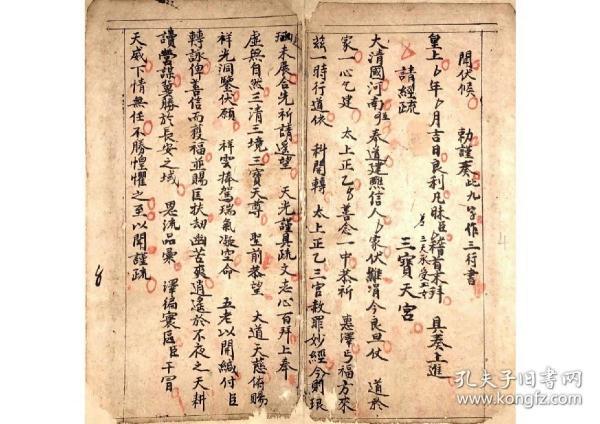 聞伏候 勅謹奏 此九字作三行書
皇上 年 月吉日良利凡昧臣 稽首末拜 具奏上進
三天承受玉女
三寶天宮
請經疏
大清國河南 奉道建熙信人 家伏雛涓今良旦伏 道於
家一心乞建 太上正乙 善念一中恭祈 惠澤 福方來
茲一時行道依 科開轉 太上正乙三官救罪妙經今則琅
函未展合先祈請遥望 天光謹具疏文志心百拜上奉
虛無自然三清三境三寶天尊 聖前恭望 大道天慈俯賜
祥光洞鑒伏願 祥雲捧駕瑞氣凝空命 五老以開緘付臣
轉詠俾善信而獲福並賜匡扶刧幽苦爽逍遙於不夜之天耕
讀營謀冀勝於長安之域 恩流品彙 澤徧寰區臣干冐
天威下情無任不勝惶懼之至以聞謹疏
孔夫子旧书网
www.kongfz.com